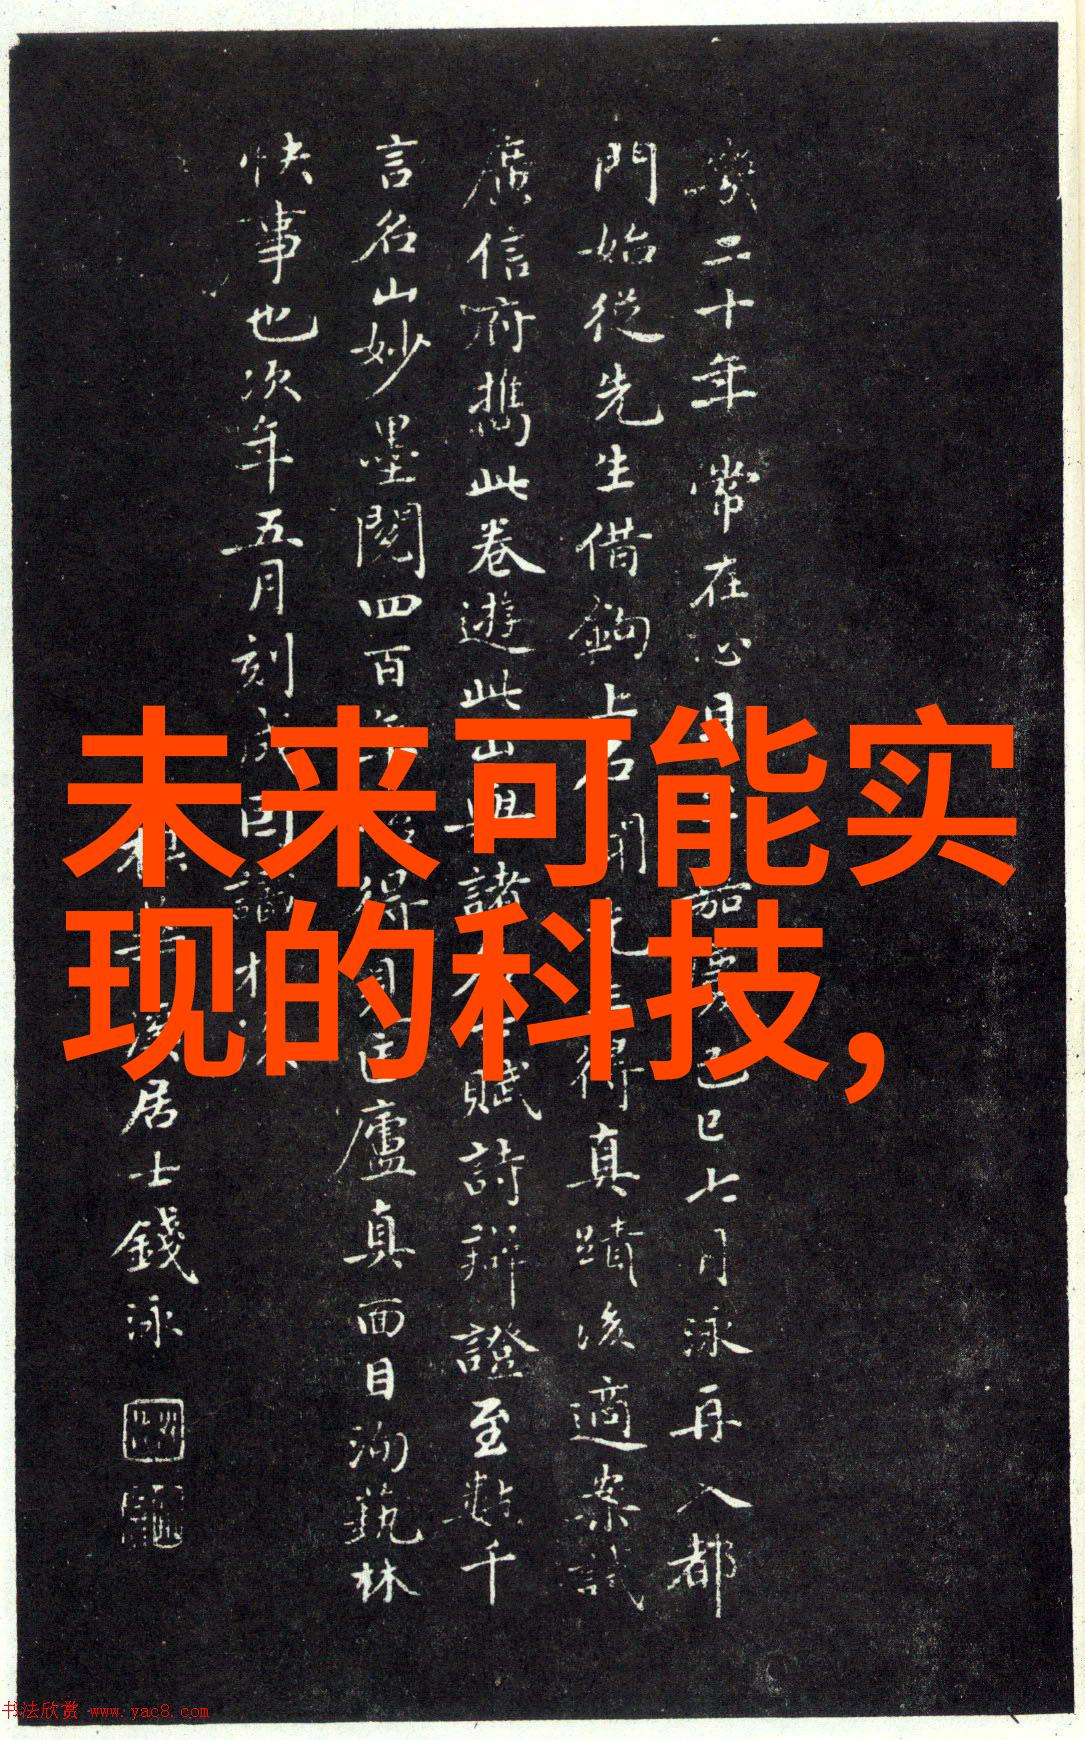 未来可能实
现的科技,
二十年常在心目
嘉慶己巳七月泳再入都
門始從先生借鉤上石
得真蹟後適案試
廣信府攜此卷遊此山與諸
賦詩辯證至數千
言名山妙墨閱四百年
得見匡廬真面目洵藝林
快事也次年五月刻成因識
溪居士錢泳
书法欣赏 www.yac8.com